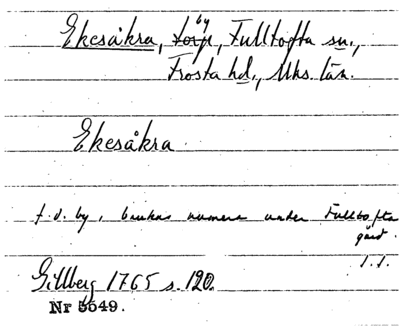 Ekesåkra, by, Fulltofta sn.,
Frosta hd., Mhs. län.
Ekesåkra
f.d. by, brukas numera under Fulltofta
gård.
1.1.
Gillberg 1765 s. 120.
Nr 5549.